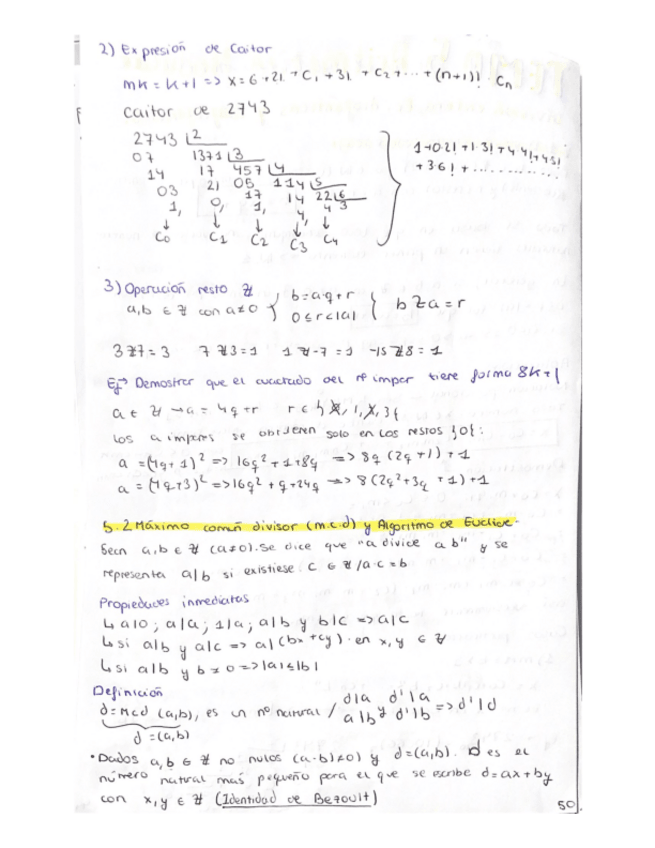 2) Expresión de Caitor
mk = k+1 => x = 6 + 2! + C₁ + 3! + C₂ + ... + (n+1)! · Cn
Caitor de 2743
2743 |2
07 1371 |3
14 17 457 |4
03 21 05 114 |5
1, 0, 17 14 22 |6
1, 4, 4 3
↓ ↓ ↓ ↓ ↓
C₀ C₁ C₂ C₃ C₄
1+0·2!+1·3!+4·4!+4·5!
+3·6!+..........
3) Operación resto
a,b ∈ Z con a≠0 { b=a·q+r
0≤r<|a| { b % a = r
3%7=3 7%3=1 1%-7=1 -15%8=1
Ej→ Demostrar que el cuadrado del nº impar tiene forma 8k+1
a ∈ Z → a = 4q+r r ∈ {0, 1, 2, 3}
Los a impares se obtienen solo en los restos
a = (4q+1)² => 16q²+1+8q => 8q(2q+1)+1
a = (4q+3)² => 16q²+9+24q => 8(2q²+3q+1)+1
5.2 Máximo común divisor (m.c.d) y Algoritmo de Euclides.
Sean a,b ∈ Z (a≠0). Se dice que "a divide a b" y se
representa a|b si existiese c ∈ Z / a·c=b
Propiedades inmediatas
↳ a|0; a|a; 1|a; a|b y b|c => a|c
↳ si a|b y a|c => a|(bx+cy) en x,y ∈ Z
↳ si a|b y b≠0 => |a|≤|b|
Definición
d=Mcd (a,b), es un nº natural / d|a y d'|a => d'|d
a|b d'|b
d=(a,b)
• Dados a,b ∈ Z no nulos (a·b≠0) y d=(a,b). d es el
número natural más pequeño para el que se escribe d=ax+by
con x,y ∈ Z (Identidad de Bezouit)
50